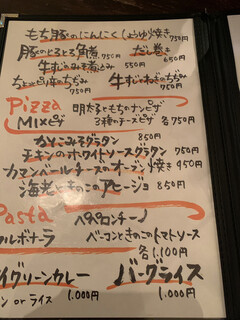 もち豚のにんにくしょうゆ焼き 750円
豚のとろとろ角煮 750円 だし巻き 650円
牛すじのみそ煮込み 550円
ちょっピリ辛のちぢみ 750円 牛すじねぎのちぢみ 750円
Pizza 明太ともちのナンピザ
MIXピザ 3種のチーズピザ 各750円
かに みそグラタン 850円
チキンのホワイトソースグラタン 750円
カマンベールチーズのオーブン焼き 950円
海老ときのこのアヒージョ 850円
Pasta ペペロンチーノ
ルボナーラ ベーコンときのこトマトソース
各1,100円
イグリーンカレー バーグライス
ン or ライス 1,000円 1,000円